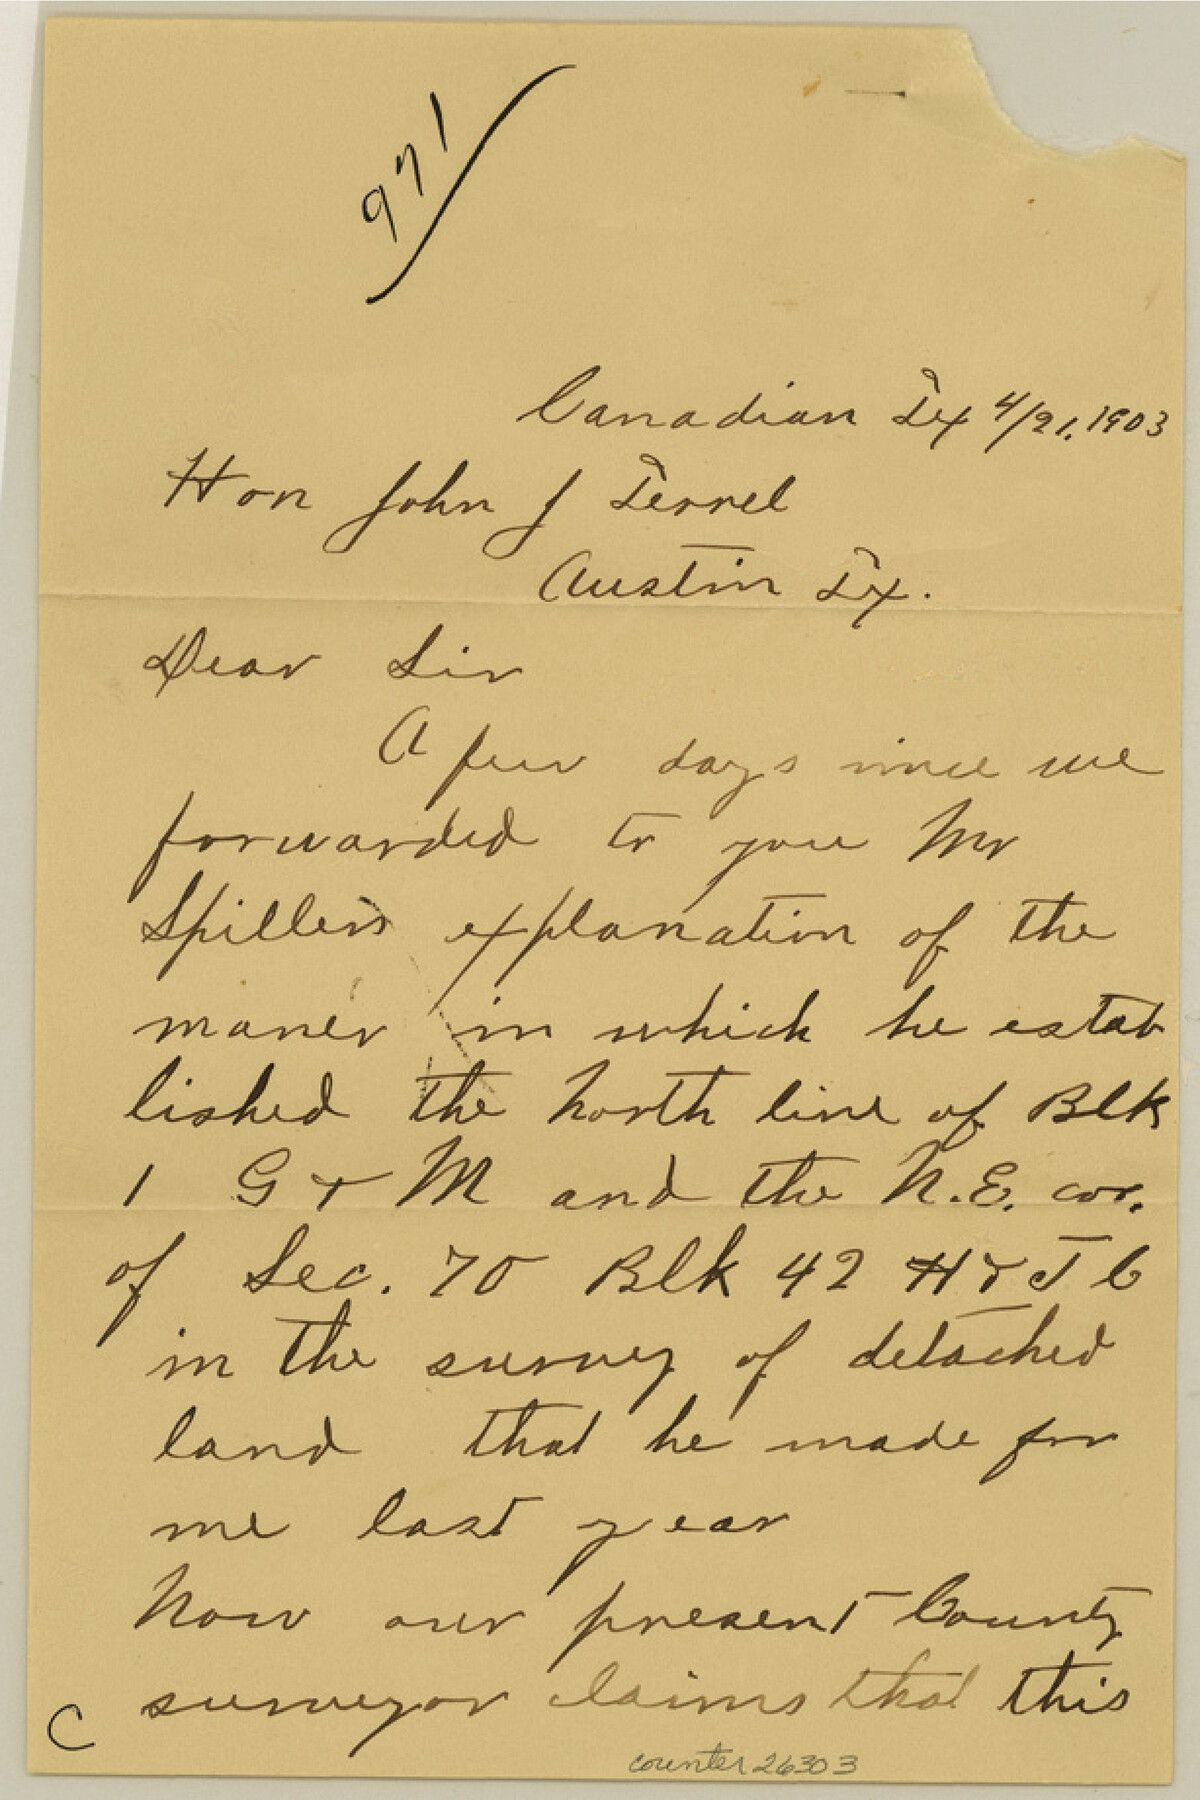 971
Canadian Tx 4/21, 1903
Hon John J Terrel
Austin Tx.
Dear Sir
A few days since we
forwarded to you Mr
Spillers explanation of the
maner in which he estab
lished the North line of Blk
1 G & M and the N.E. cor.
of Sec. 70 Blk 42 H & T C
in the survey of detached
land that he made for
me last year
Now our present County
surveyor claims that this
C
counter 26303